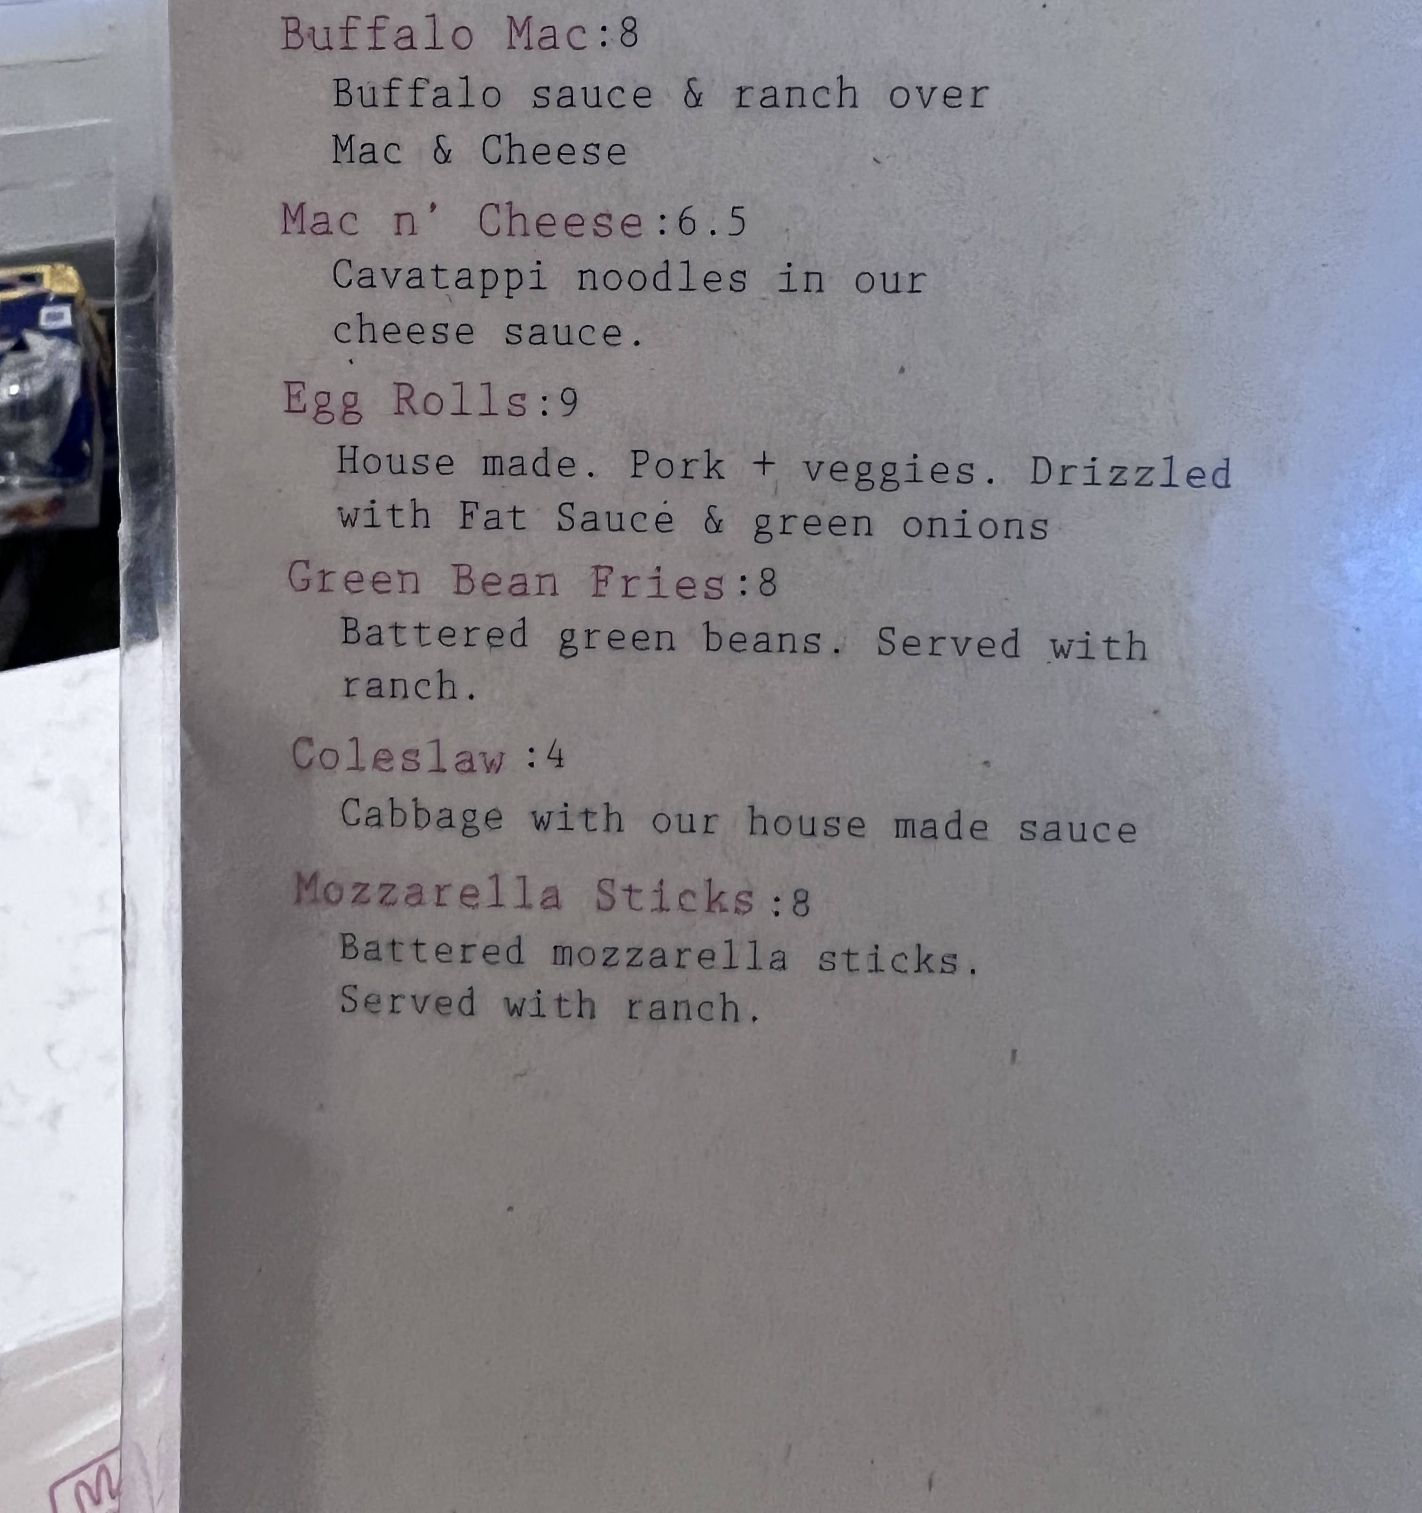 Buffalo Mac:8
Buffalo sauce & ranch over
Mac & Cheese
Mac n' Cheese:6.5
Cavatappi noodles in our
cheese sauce.
Egg Rolls:9
House made. Pork + veggies. Drizzled
with Fat Sauce & green onions
Green Bean Fries:8
Battered green beans. Served with
ranch.
Coleslaw :4
Cabbage with our house made sauce
Mozzarella Sticks :8
Battered mozzarella sticks.
Served with ranch.